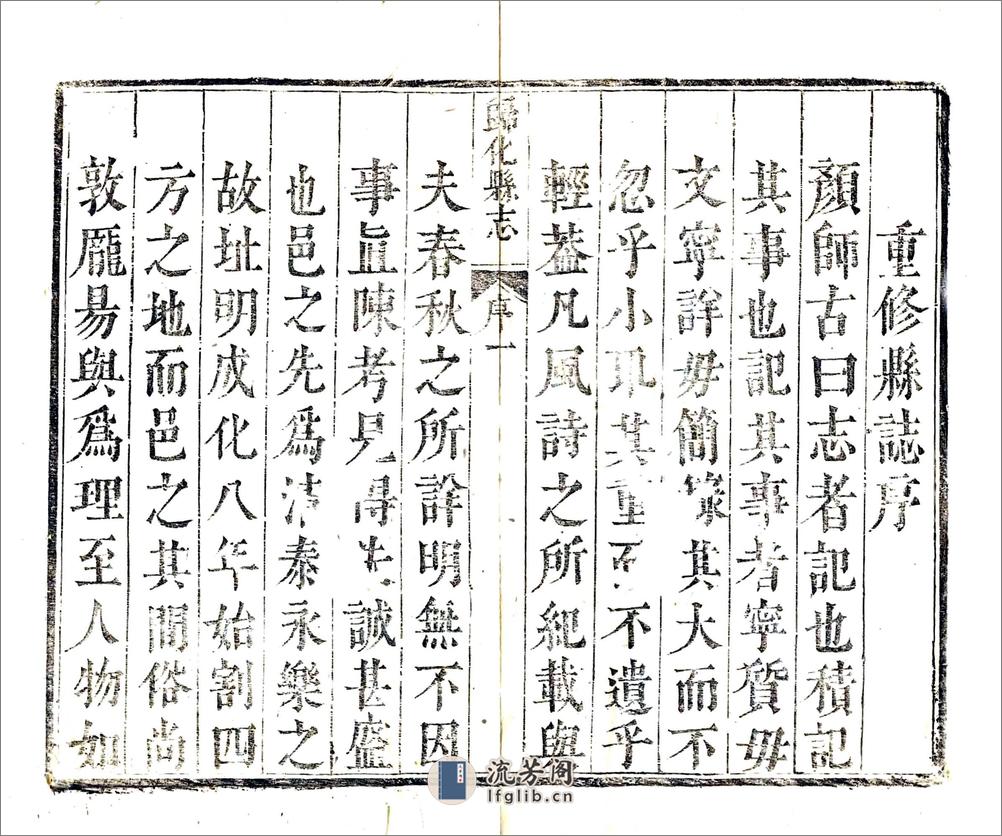 重修縣誌序
顏師古曰志者記也積記
其事也記其事者寧質毋
文寧詳毋簡條其大而不
忽乎小取其重而不遺乎
輕葢凡風詩之所紀載與
歸化縣志 序 一
夫春秋之所詮明無不因
事直陳考見得失誠甚盛
也邑之先爲清泰永樂之
故址明成化八年始割四
方之地而邑之其間俗尚
敦龎易與爲理至人物如
流芳阁
lfglib.cn